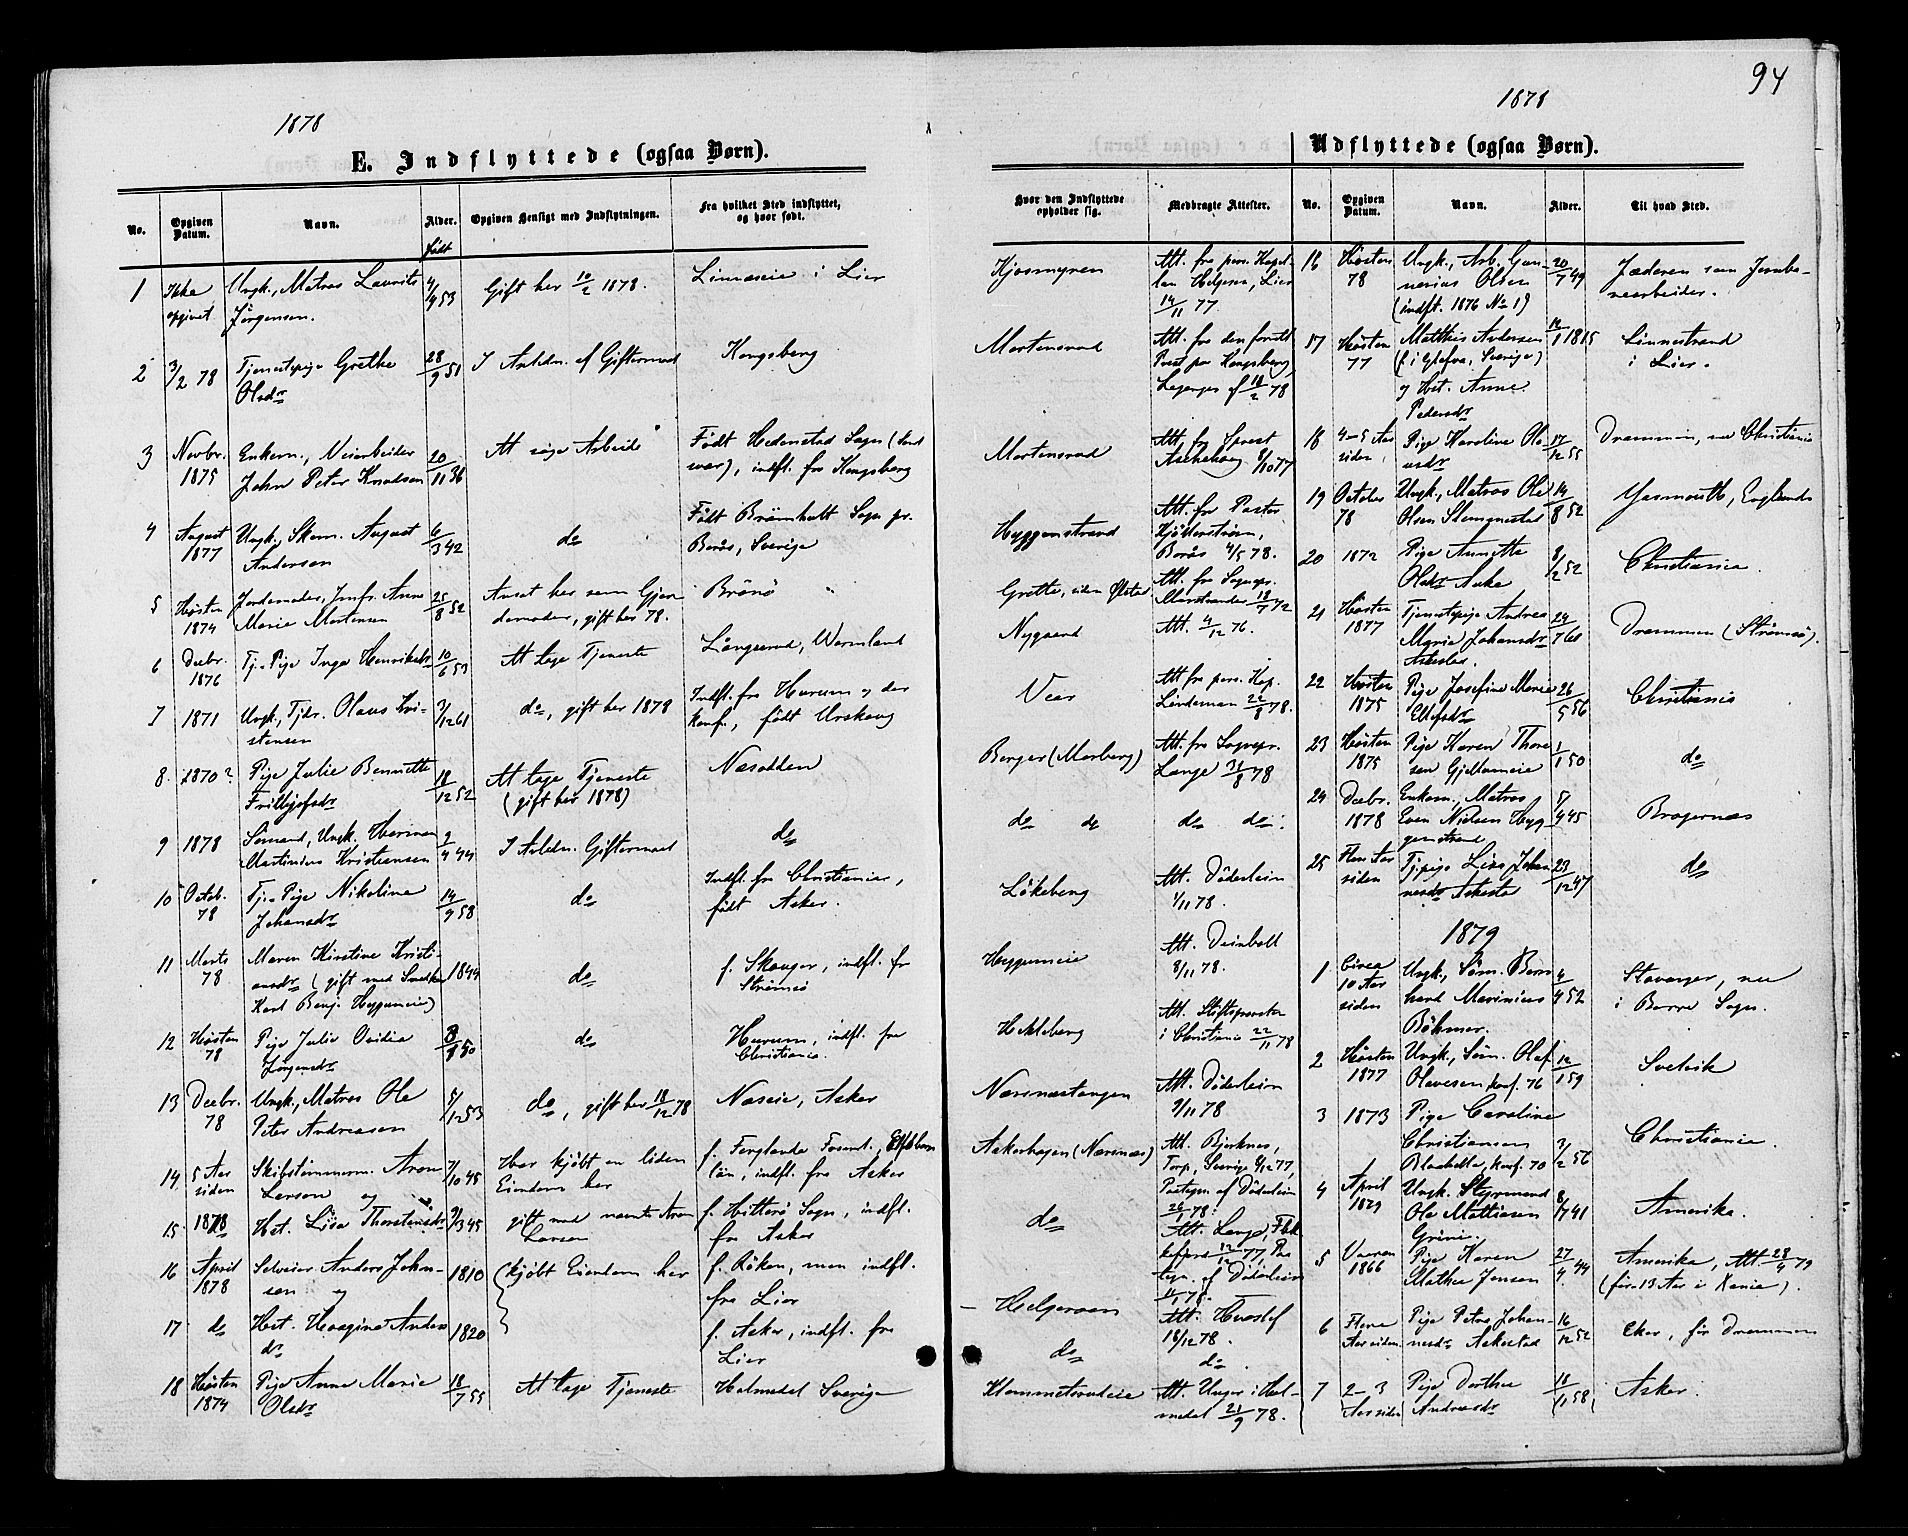 94
1878
E. Indflyttede (ogsaa Børn).
No.
Opgiven Datum.
Navn.
Alder.
født
Opgiven Hensigt med Indflytningen.
Fra hvilket Sted indflyttet, og hvor født.
1 Ikke Ungk., Matros Laurits 4/4 53 Gift her 10/2 1878. Linnæseie i Lier
opgivet Jørgensen.
2 3/2 78 Tjenestepige Grethe 28/9 51 I Anledn. af Giftermaal Kongsberg
Olsdr
3 Novbr. Enkem., Veiarbeider 20/11 36 At søge Arbeide Født Hedenstad Sogn (Sand
1875 John Peter Knudsen svær), indfl. fra Kongsberg
4 August Ungk., Skom. August 6/3 42 do Født Brämhult Sogn pr.
1877 Andersen Borås, Sverige
5 Høsten Jordemoder, Jmfr. Anne 25/8 52 Ansat her som Gjor Brönö
1874 Marie Mortensen demoder, gift her 78.
6 Decbr. Tj. Pige Inga Henriksdr 10/6 53 At tage Tjeneste Långserud, Wermland
1876
7 1871 Ungk., Tjdr. Olaus Kri- 3/12 61 do, gift her 1878 Indfl. fra Hurum og der
stensen konf., født Urskoug
8. 1870? Pige Julie Bennette 18/12 52 At tage Tjeneste Næsodden
Frithjofsdr (gift her 1878)
9 1878 Sømand, Ungk. Herman 2/4 44 I Anledn. Giftermaal do
Martinius Kristiansen
10 Octob. Tj. Pige Nikoline 14/9 58 do Indfl. fra Christiania,
78 Johansdr født Asker.
11 Marts Maren Kirstine Kristi- 1844 do f. Skauger, indfl. fr
78 ansdr (gift med Snedker Strømsö
Karl Benj. Hyggumeie)
12 Høsten Pige Julie Ovidia 8/8 50 do Hurum, indfl. fra
78 Jørgensdr Christiania.
13 Decbr. Ungk., Matros Ole 5/12 53 do, gift her 18/12 78 Næseie, Asker
78 Peter Andreasen
14 5 Aar Skibstømmerm. Aron 7/10 45 Har kjøbt en liden f. Ferglanda Forsml., Elfsborg
siden Larson og Eiendom her län, indfl. fra Asker
15 1878 Hst. Lisa Thorstensdr 9/3 45 gift med nævnte Aron f. Hitterö Sogn, indfl.
Larson fra Asker
16 April Selveier Anders John- 1810 (kjøbt Eiendom her f. Röken, men indfl.
1878 sen og fra Lier
17 do Hst. Haagine Anders 1820 f. Asker, indfl. fra
dr Lier
18 Høsten Pige Anne Marie 18/7 55 At tage Tjeneste Holmedal Sverige
1874 Olsdr
1878
Udflyttede (ogsaa Børn).
Hvor den Indflyttede opholder sig.
Medbragte Attester.
No.
Opgiven Datum.
Navn.
Alder.
Til hvad Sted.
Kjosmyren Att. fra pers. Kapel- 16 Høsten Ungk., Arb. Gun- 20/7 49 Jæderen som Jernba-
lan Helgesen, Lier 78 nerius Olsen nearbeider.
14/11 77. (indfl. 1876 No 1)
Mortensrud Att. fra den forrett. 17 Høsten Matthis Andersen 14/1 1815 Linnestrand
Præst paa Kongsberg, 77 (f. i Ystefva, Sverige) i Lier.
18/2 78 og Hst. Anne
Pedersdr
Mortensrud Att. fra Sprest 18 4-5 Aar Pige Karoline Ole- 17/12 55 Drammen, nu Christiania
Aschehoug 8/10 77 siden, nsdr
Hyggenstrand Att. fra Pastor 19 October Ungk., Matros Ole 14/8 52 Yarmouth, England
Kjöllerström, 78 Olsen Stemmestad
Borås 4/5 78. 20 1872 Pige Annette 8/2 52 Christiania.
Olsdr Aake
Grette, siden Ølstad Att. fra Sognepr.
Marstrander 18/7 72 21 Høsten Tjenestepige Andrea 24/7 61 Drammen (Strømsö).
Nygaard Att. 4/12 76. 1877 Marie Johansdr
Askestad.
Vear Att fra pers. Kap. 22 Høsten Pige Josefine Marie 26/5 56 Christiania
Lindeman 22/8 78. 1875 Ellefsdr
Berger (Morberg) Att. fra Sognepr. 23 Høsten Pige Karen Thore 1/1 50 do
Lange 31/8 78 1875 sen Gjellumeie
do do do do. 24 Decbr. Enkem., Matros 5/4 45 Bragernæs
1878 Even Nielsen Hyg-
genstrand
Lökeberg Att. Döderlein 25 Flere Aar Tjpige Lise Johan 23/12 47 do
1/11 78. siden nesdr Askestad
1879
Hyggumeie Att. Deinboll 1 Circa Ungk., Söm. Bern 4/4 52 Stavanger, nu
8/11 78. 10 Aar hard Marinius i Borre Sogn.
siden Böhmer.
Hekleberg Att. Stiftsprovsten
i Christiania 22/11 78 2 Høsten Ungk., Söm. Olaf 12/1 59 Svelvik
1877 Olavesen konf. 76
Næsnæstangen Att. Döderlein 3 1873 Pige Caroline
9/11 78 Christiansen 3/2 56 Christiania.
Askerhagen (Nærsnæs) Att. Björknes, Blaabella, konf. 70
Torp, Sverige 9/12 77, 4 April Ungk. Styrmand 8/7 41 Amerika.
Paategn. af Döderlein 1879 Ole Mathiasen
26/1 78. Grini.
do Att. Lange, Flek 5 Vaaren Pige Karen 27/4 44 Amerika, Att. 28/4 79
kefjord 12/12 77, Paa 1866 Mathea Jensen (før 13 Aar i Xania).
tegn. af Döderlein
11/1 78.
Helgeraaen Att. Hvoslef 6 Flere Pige Petra Johan- 16/12 52 Eker, før Drammen
18/12 78. Aar siden nesdr Askestad
do do.
Klemmetsrudeie Att. Unger i Hol- 7 2-3 Pige Dorthea 18/11 58 Asker.
medal 21/9 78. Aar siden Andreasdr